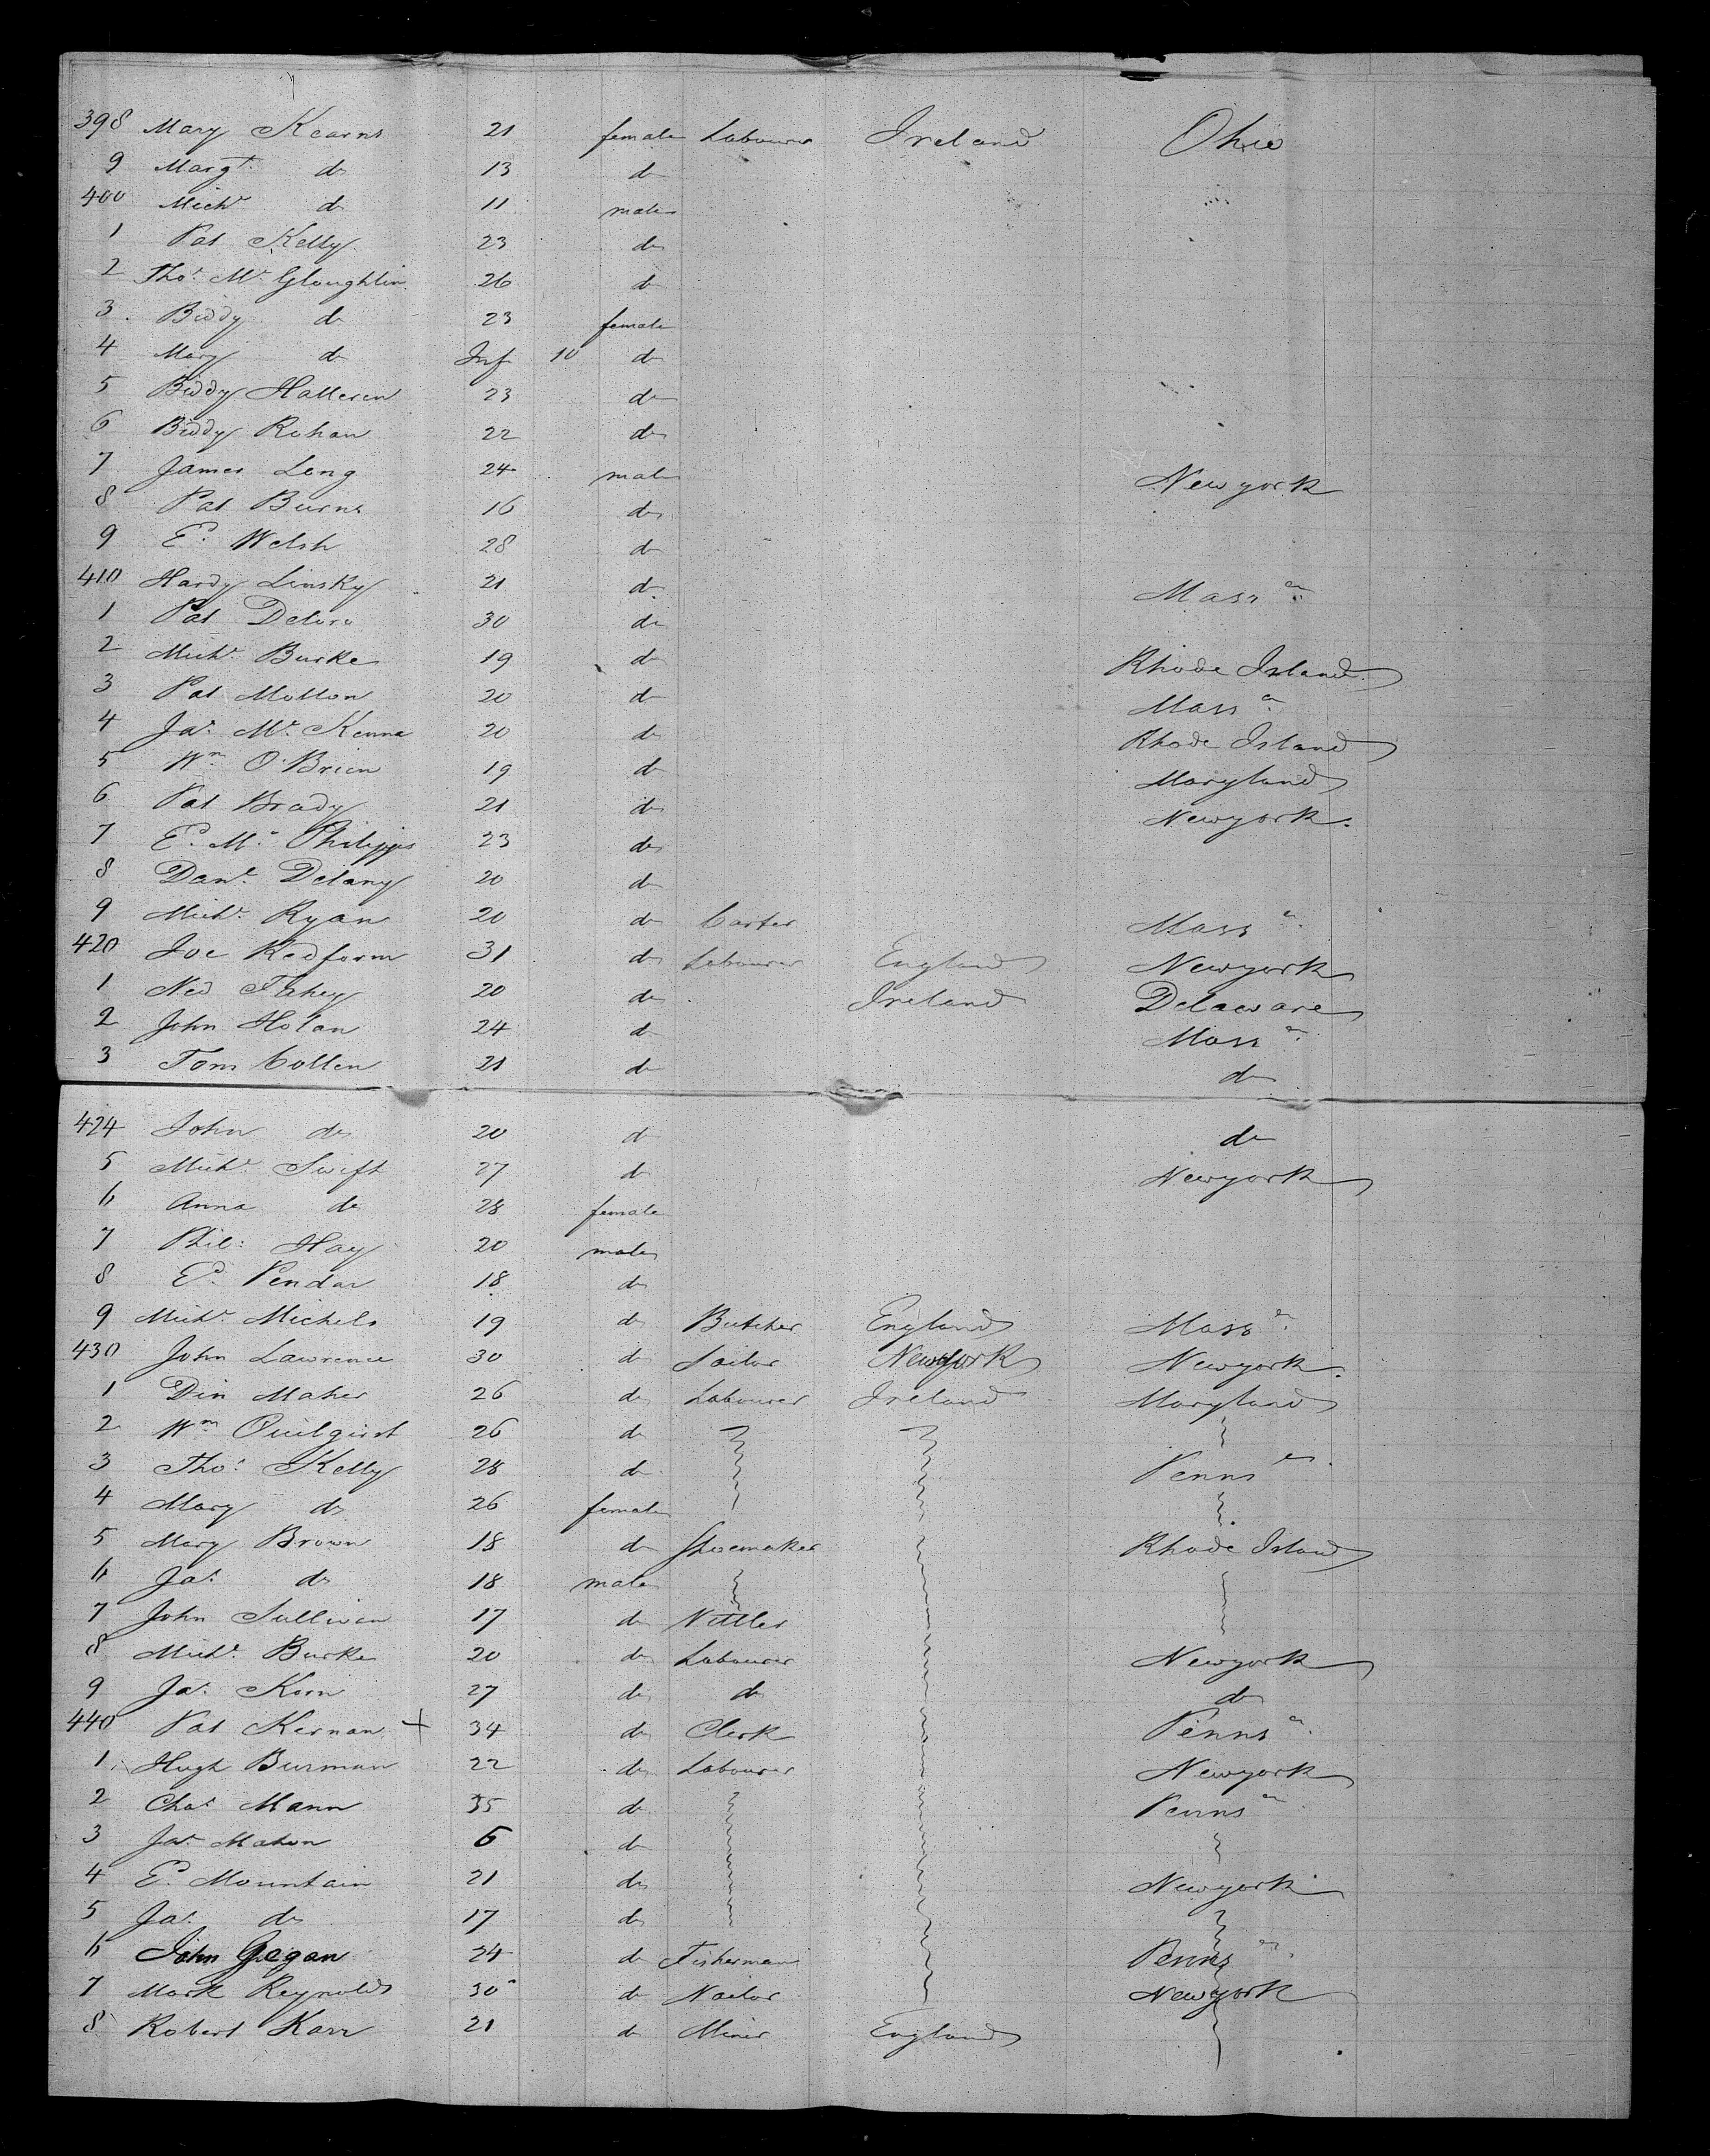 398 Mary Kearns 21 female Labourer Ireland Ohio
9 Margt. do 13 do
400 Michl do 11 male
1 Pat Kelly 23 do
2 Thos. Mc Gloughlin 26 do
3 Biddy do 23 female
4 Mary do Inf 10 do
5 Biddy Halleren 23 do
6 Biddy Rohan 22 do
7 James Long 24 male Newyork
8 Pat Burns 16 do
9 Ed. Welsh 28 do
410 Hardy Linsky 21 do Mass a.
1 Pat 30 do
2 Michl. Burke 19 do Rhode Island
3 Pat Mollon 20 do Mass a.
4 Jas. Mc. Kenna 20 do Rhode Island
5 Wm O'Brien 19 do Maryland
6 Pat Brady 21 do Newyork.
7 Ed. Mc. Philipps 23 do
8 Danl. Delany 20 do
9 Michl. Ryan 20 do Carter Mass a.
420 Joe Redform 31 do Labourer England Newyork
1 Ned Fahey 20 do Ireland Delaware
2 John Holan 24 do Mass a.
3 Tom Collen 21 do do
424 John do 20 do do
5 Michl. Swift 27 do Newyork
6 Anna do 28 female
7 Phil: Hay 20 male
8 Ed. Pendar 18 do
9 Michl. Michels 19 do Butcher England Mass a.
430 John Lawrence 30 do Sailor Newyork Newyork.
1 Din Maher 26 do Labourer Ireland Maryland
2 Wm 26 do
3 Thos. Kelly 28 do Penns a.
4 Mary do 26 female
5 Mary Brown 18 do Shoemaker Rhode Island
6 Jas. do 18 male
7 John Sullivan 17 do
8 Michl. Burke 20 do Labourer Newyork
9 Jas. 27 do do do
440 Pat Kernan + 34 do Clerk Penns a.
1 Hugh Burman 22 do Labourer Newyork
2 Chas. Mann 35 do Penns a
3 Jas. Mahon 6 do
4 Ed. Mountain 21 do Newyork
5 Jas. do 17 do
6 John Gegan 24 do Fisherman Penns a.
7 Mark Reynolds 30 do Nailor Newyork
8 Robert Karr 21 do Miner England